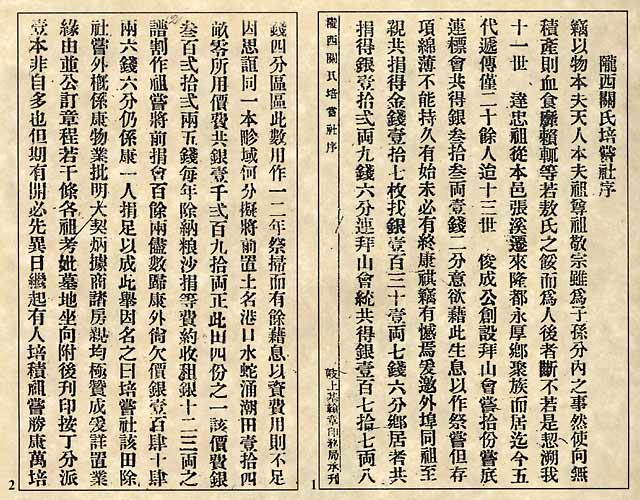 隴西關氏培嘗社序
竊以物本夫天人本夫祖尊祖敬宗雖為子孫分內之事然使向無
積產則血食靡賴輒等若敖氏之餒而為人後者斷不若是恝溯我
十一世 達忠祖從本邑張溪遷來隆都永厚鄉聚族而居迄今五
代遞傳僅二十餘人迨十三世 俊成公創設拜山會嘗拾份嘗厎
連標會共得銀叁拾叁両壹錢二分意欲藉此生息以作祭嘗但存
項綿薄不能持久有始未必有終康祺竊有憾焉爰邀外埠同祖至
親共捐得金錢壹拾七枚找銀壹百三十壹両七錢六分鄉居者共
捐得銀壹拾弍両九錢六分連拜山會統共得銀壹百七拾七両八
隴西關氏培嘗社序
1
翰章印務局承刊
錢四分區區此數用作一二年祭掃而有餘藉息以資費用則不足
因思誼同一本畛域何分擬將前置土名港口水蛇涌潮田壹拾四
畝零所用價費共銀壹千弍百九拾両正此田四份之一該價費銀
叁百弍拾弍両五錢每年除納粮沙捐等費約收租銀十二三両之
譜割作祖嘗將前捐會百餘両儘數歸康外尚欠價銀壹百肆十肆
両六錢六分仍係康一人捐足以成此舉因名之曰培嘗社該田除
社嘗外概係康物業批明大契炳據商諸房親均極贊成爰詳置業
緣由並公訂章程若干條各祖考妣墓地坐向附後刊印按丁分派
壹本非自多也但期有開必先異日繼起有人培積祖嘗勝康萬培
2